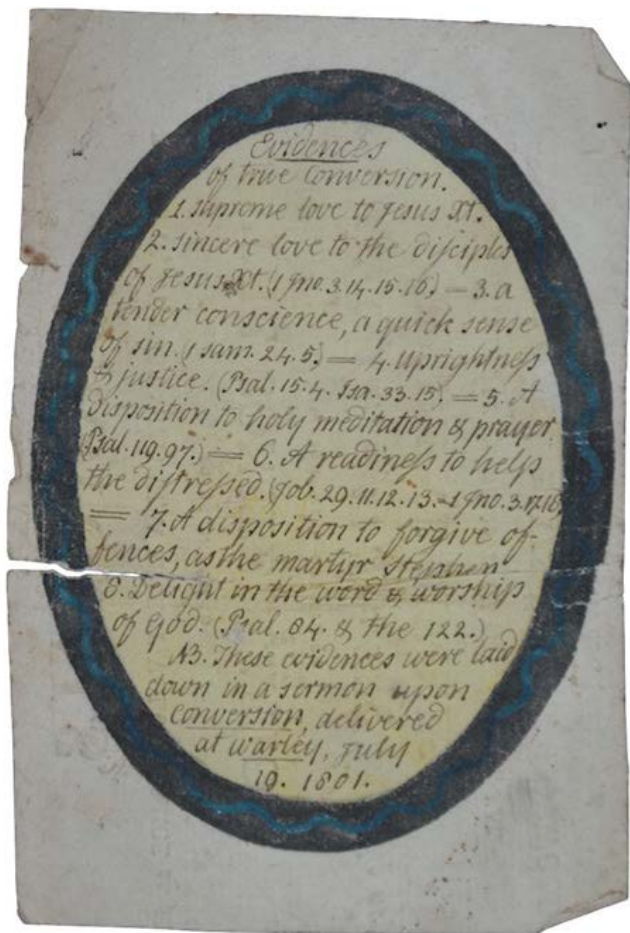 Evidences
of true Conversion.
1. supreme love to Jesus Xt.
2. sincere love to the disciples
of Jesus Xt. (1 Jno. 3. 14. 15. 16.) = 3. a
tender conscience, a quick sense
of sin. (1 sam. 24. 5.) = 4. uprightness
& justice. (Psal. 15. 4. Isa. 33. 15.) = 5. A
disposition to holy meditation & prayer
(Psal. 119. 97.) = 6. A readiness to help
the distressed. (Job. 29. 11. 12. 13. - 1 Jno. 3. 17. 18)
= 7. A disposition to forgive of-
fences, as the martyr Stephen
8. Delight in the word & worship
of God. (Psal. 84. & the 122.)
NB. These evidences were laid
down in a sermon upon
conversion, delivered
at Warley, July
19. 1801.